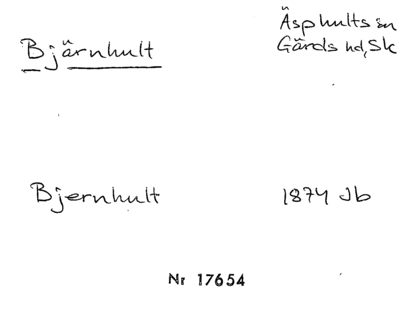 Bjärnhult
Äsphults sn
Gärds hd, Sk
Bjernhult
1874 Jb
Nr 17654